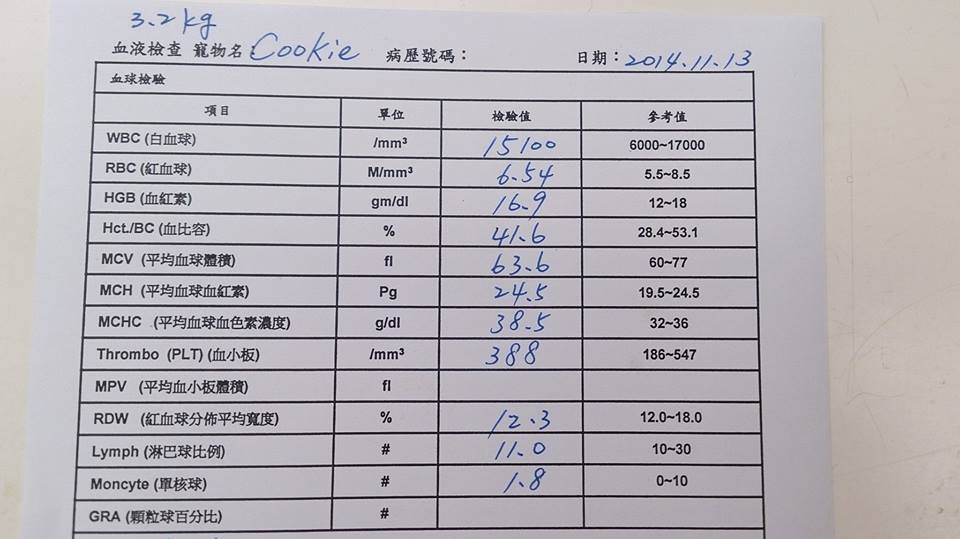 3.2kg
血液檢查 寵物名:Cookie 病歷號碼: 日期:2014.11.13
血球檢驗
項目 單位 檢驗值 參考值
WBC (白血球) /mm³ 15100 6000~17000
RBC (紅血球) M/mm³ 6.54 5.5~8.5
HGB (血紅素) gm/dl 16.9 12~18
Hct./BC (血比容) % 41.6 28.4~53.1
MCV (平均血球體積) fl 63.6 60~77
MCH (平均血球血紅素) Pg 24.5 19.5~24.5
MCHC (平均血球血色素濃度) g/dl 38.5 32~36
Thrombo (PLT) (血小板) /mm³ 388 186~547
MPV (平均血小板體積) fl
RDW (紅血球分佈平均寬度) % 12.3 12.0~18.0
Lymph (淋巴球比例) # 11.0 10~30
Moncyte (單核球) # 1.8 0~10
GRA (顆粒球百分比) #